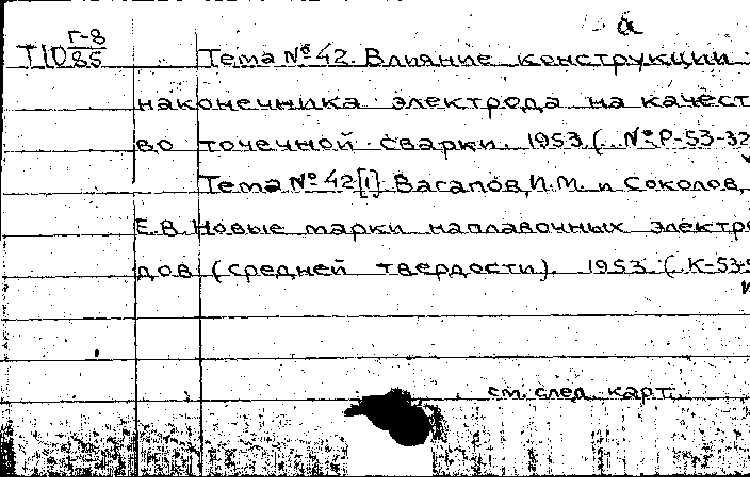 а
Т10 Г-8/85 Тема № 42. Влияние конструкции
наконечника электрода на качест
во точечной сварки. 1953 ( № Р-53-32
Тема № 42[1]. Васапов, И.М. и Соколов,
Е.В. Новые марки наплавочных электро
дов (средней твердости). 1953 ( К-53-
см. след. карт.